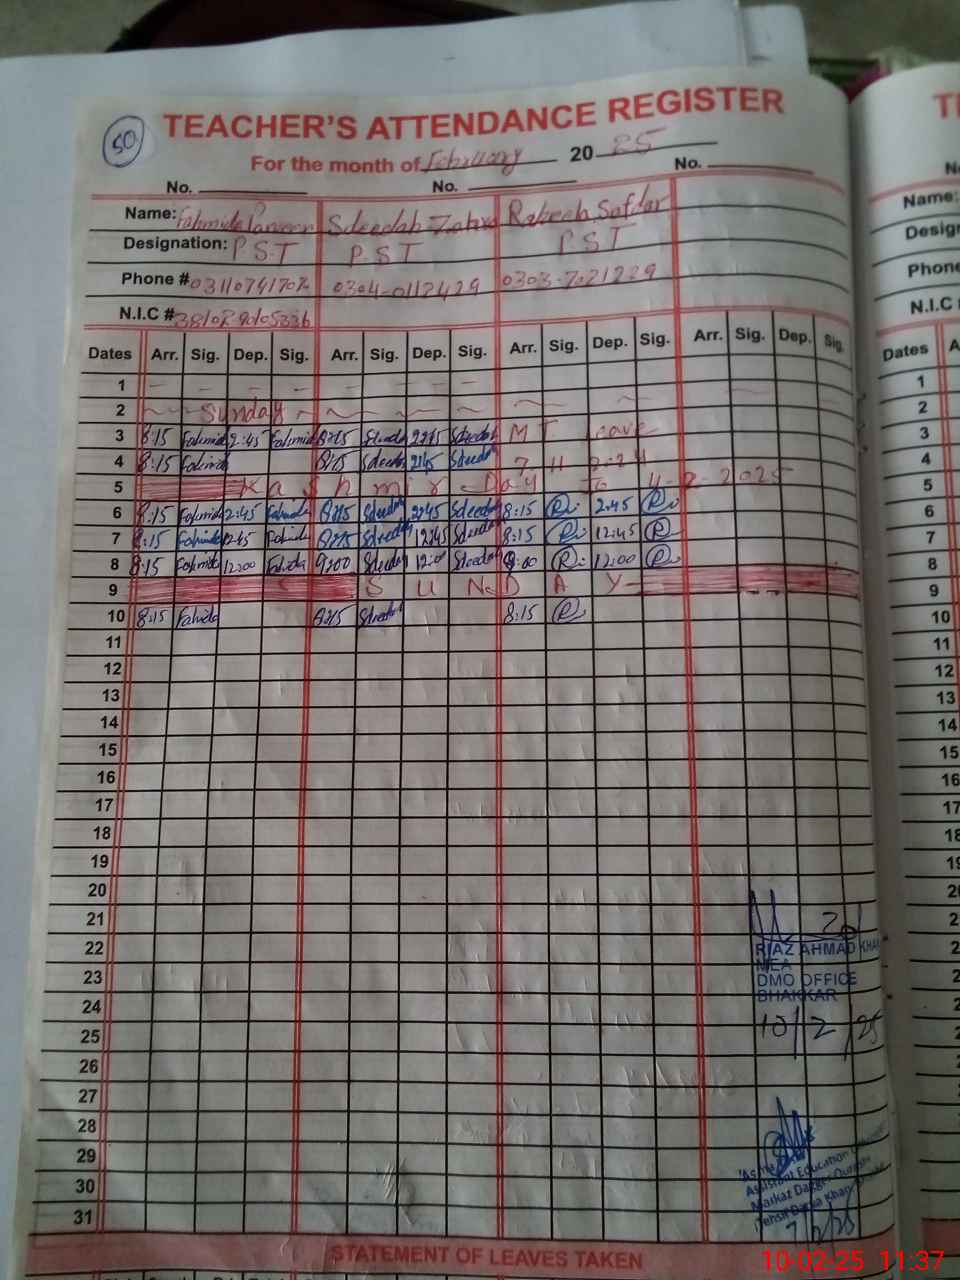 50
TEACHER'S ATTENDANCE REGISTER
For the month of February 20 25
No. No. No.
Name: Fahmida Parveen Sdeedah Zahra Rabeeh Safdar
Designation: P.S.T P.S.T P.S.T
Phone # 03110741702 0304-0112429 0303-7021229
N.I.C #
Dates Arr. Sig. Dep. Sig. Arr. Sig. Dep. Sig. Arr. Sig. Dep. Sig. Arr. Sig. Dep. Sig.
1
2 Sunday
3 8:15 Fahmida 2:45 Fahmida 8:15 Sdeedah 2:45 Sdeedah M T Leave
4 8:15 Fahmida 8:15 Sdeedah 2:45 Sdeedah 7 11 2024
5 Kashmir Day to 4-2-2025
6 8:15 Fahmida 2:45 Fahmida 8:15 Sdeedah 2:45 Sdeedah 8:15 R 2:45 R
7 8:15 Fahmida 12:45 Fahmida 8:15 Sdeedah 12:45 Sdeedah 8:15 R 12:45 R
8 8:15 Fahmida 12:00 Fahmida 9:00 Sdeedah 12:00 Sdeedah 9:00 R 12:00 R
9 S U N D A Y
10 8:15 Fahmida 8:15 Sdeedah 8:15 R
11
12
13
14
15
16
17
18
19
20
21
22
23
24
25
26
27
28
29
30
31
RIAZ AHMAD KHAN
MEA
DMO OFFICE
BHAKKAR
10/2/25
Assistant Education
Markaz
Tehsil Darya Khan
7/2/25
STATEMENT OF LEAVES TAKEN
Name:
Phone
N.I.C
Dates
1
2
3
4
5
6
7
8
9
10
11
12
13
14
15
16
17
18
10-02-25 11:37